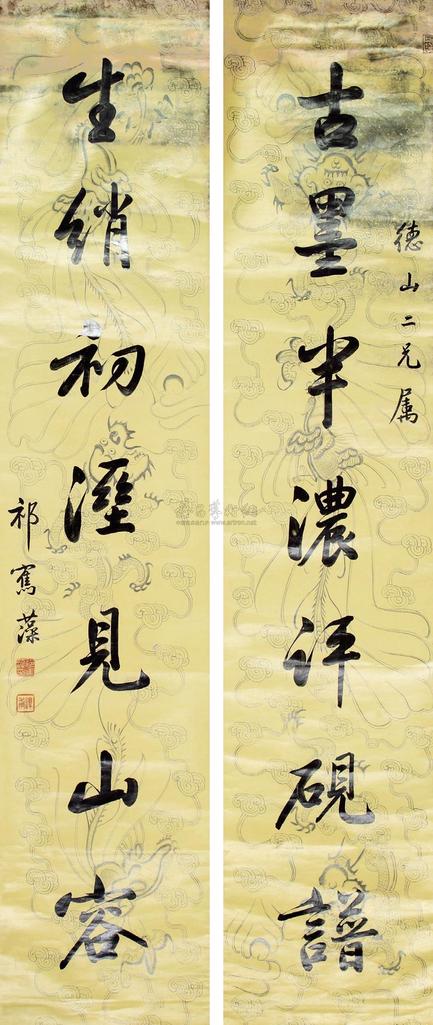 德山二兄属
古墨半濃評硯譜
生綃初溼見山容
祁寯藻